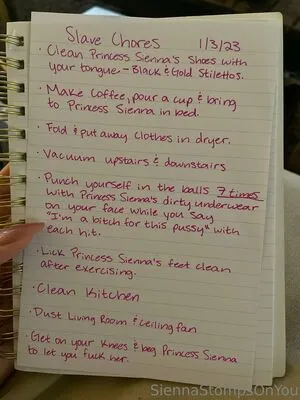 Slave Chores 1/3/23
· Clean Princess Sienna's Shoes with
your tongue. - Black & Gold Stilettos.
· Make Coffee, pour a cup & bring
to Princess Sienna in bed.
· Fold & put away clothes in dryer.
· Vacuum upstairs & downstairs
· Punch yourself in the balls 7 times
with Princess Sienna's dirty underwear
on your face while you say
"I'm a bitch for this pussy" with
each hit.
· Lick Princess Sienna's feet clean
after exercising.
· Clean Kitchen
· Dust Living Room & ceiling fan
· Get on your knees & beg Princess Sienna
to let you fuck her.
SiennaStompsOnYou